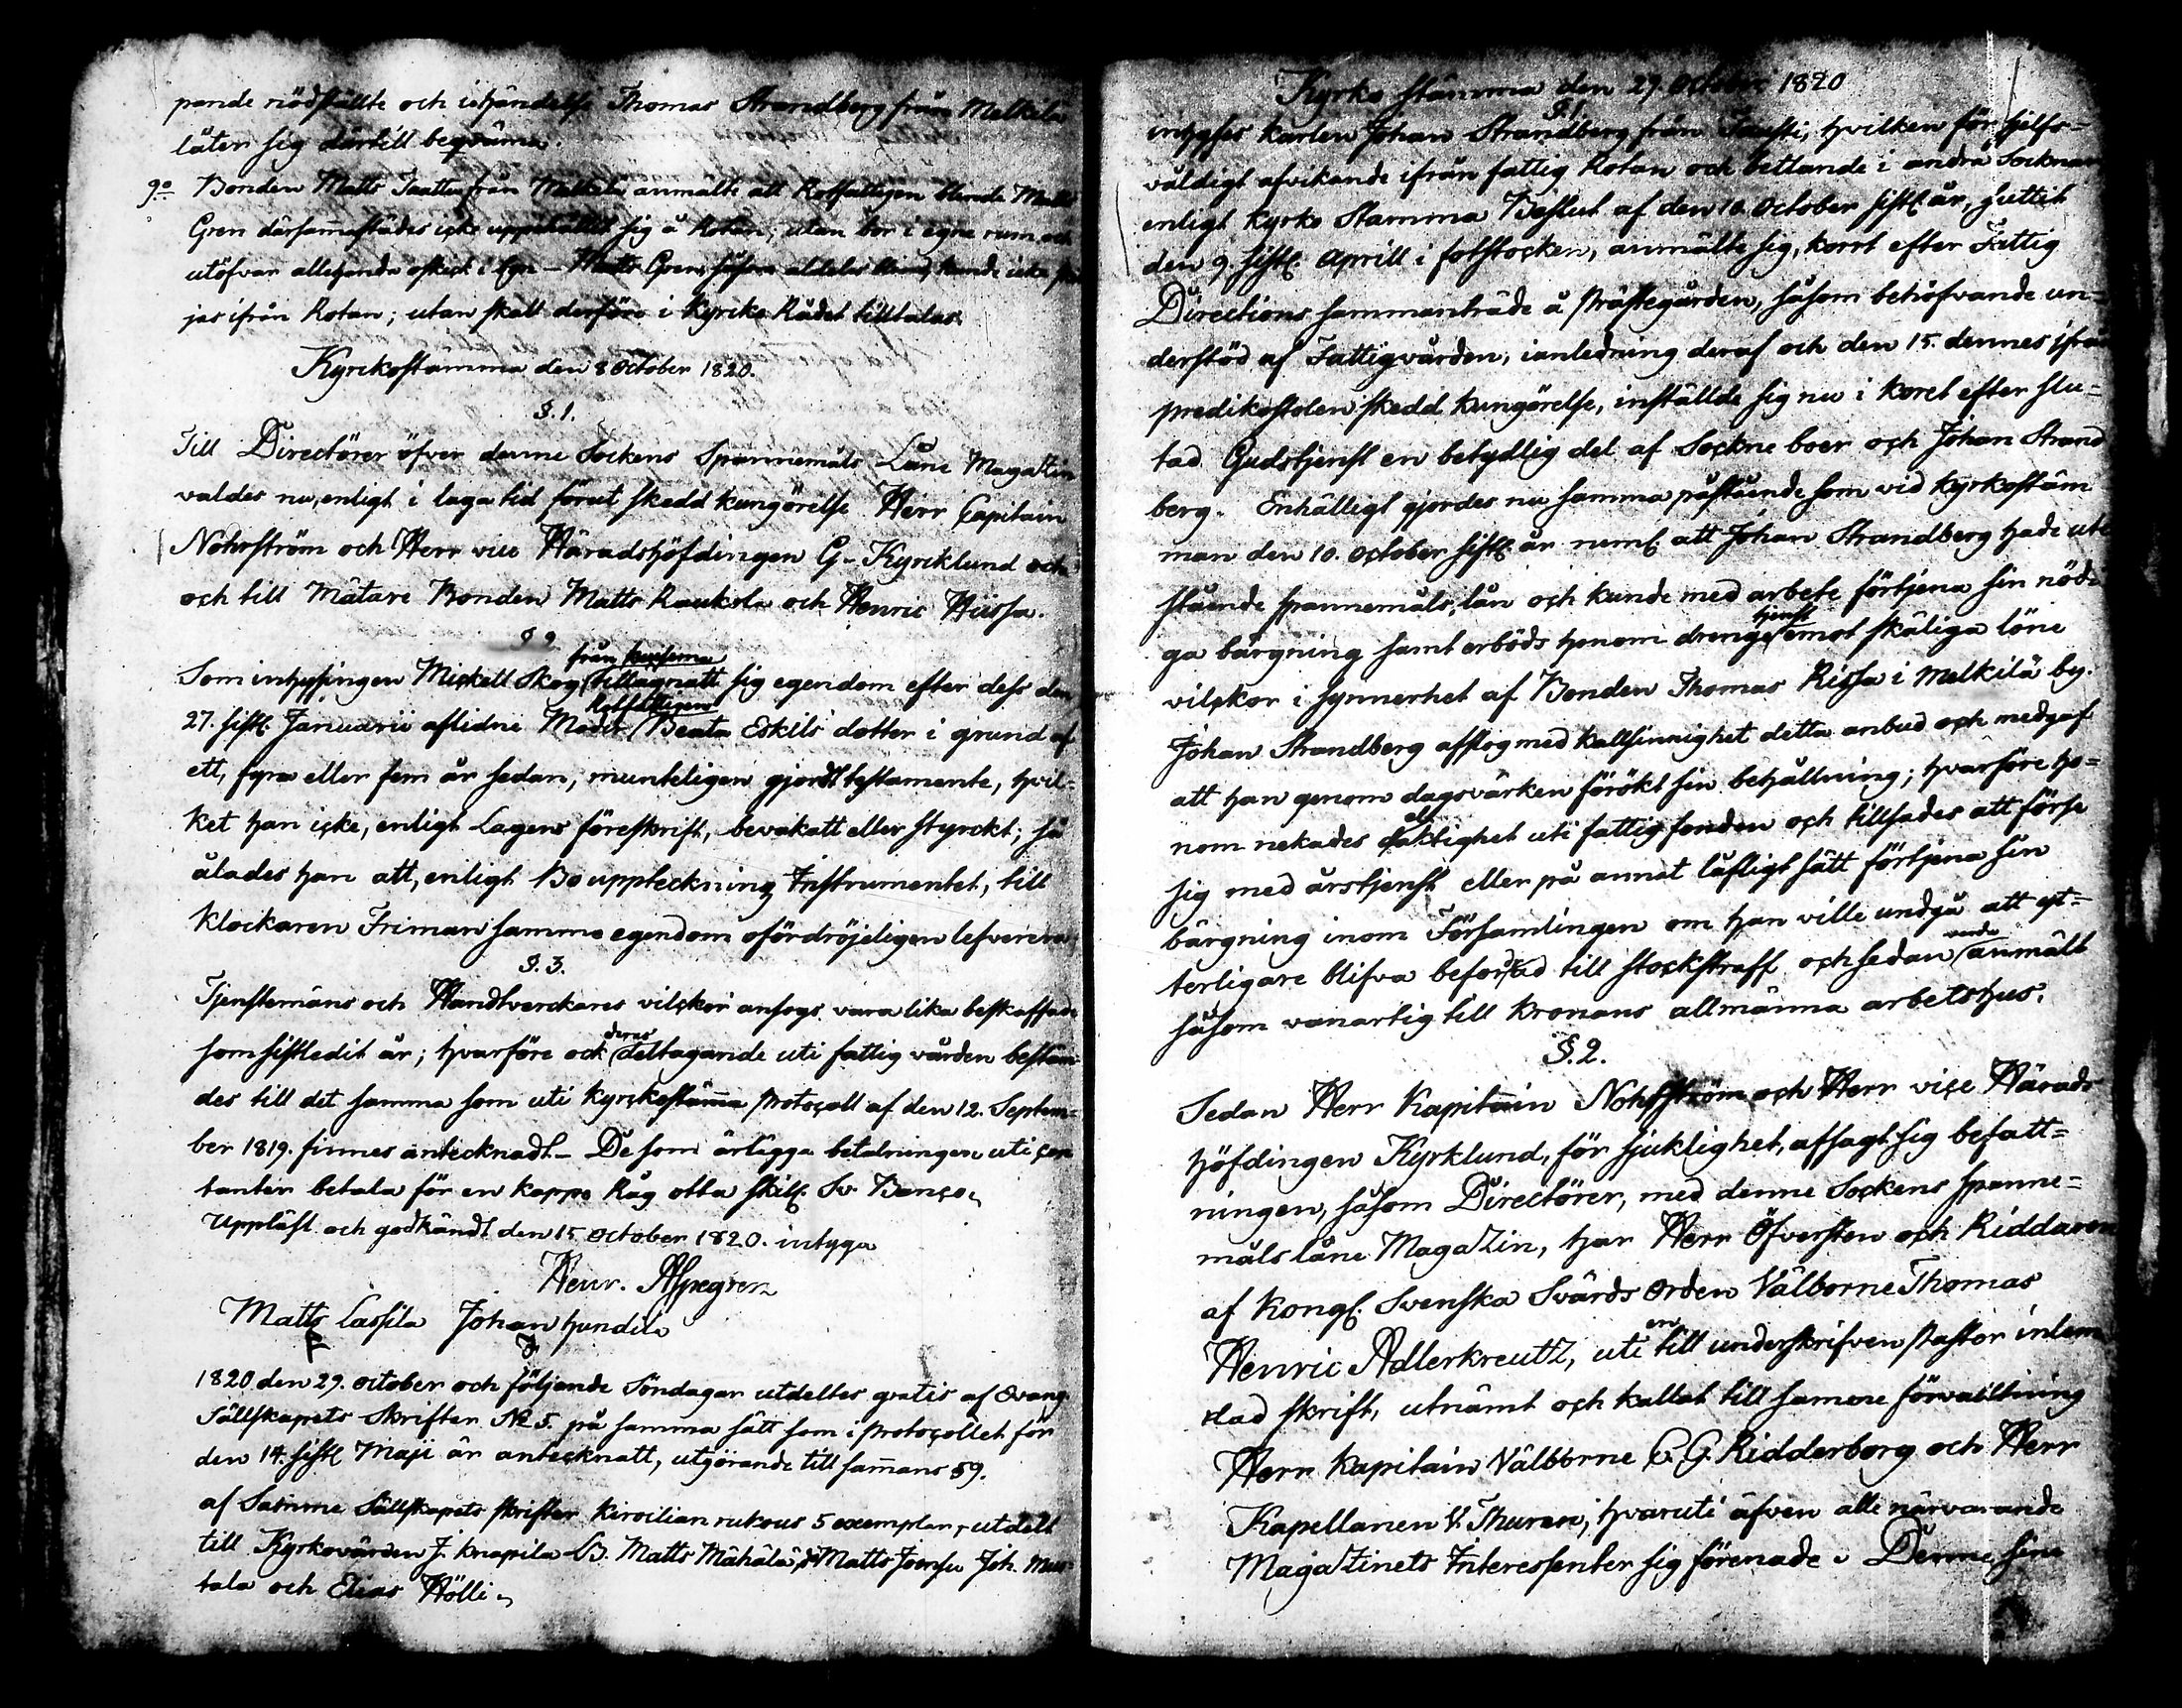 pande nödställte och i händelse Thomas Strandberg från Melkila
låter sig därtill beqväma.
9:o Bonden Matts Taattu från Melkila anmälte att Rotfattigen blinde Matts
Gren därsam̄astädes icke uppehållit sig å Rotan, utan bor i egne rum och
utöfvar allehanda oskick i byn – Matts Gren såsom aldeles blind, kunde icke
jas ifrån Rotan; utan skall derföre i Kyrcko Rådet tilltalas.
Kyrckostämma den 8 October 1820.
§. 1.
Till Directörer öfver denne Sockens Spannemåls Låne Magazin
valdes nu, enligt i laga tid förut skedd kungörelse Herr Capitain
Nohrström och Herr vice Häradshöfdingen G. Kyrcklund och
och till Mätare Bonden Matts Raukola och Henric Hiissa.
§ 2.
från kusfema
Som inhysingen Mickell Skog tillägnatt sig egendom efter dess den
Rotfattigen
27. sistl. Januarii aflidne Moder Beata Eskils dotter i grund af
ett, fyra eller fem år sedan, munteligen gjordt testamente, hvil-
ket han icke, enligt Lagens föreskrift, bevakatt eller styrckt; så
ålades han att, enligt Bouppteckning Instrumentet, till
klockaren Friman samma egendom ofördröjeligen lefverera.
§. 3.
Tjenstemäns och Handtverckares vilckor ansågs vara lika beskaffade
deras
som sistledit år; hvarföre ock deltagande uti fattigvården bestäm-
des till det samma som uti kyrckostäm̄a Protocoll af den 12. Septem-
ber 1819. finnes antecknadt – De som ärlägga betalningen uti con
tanter betala för en kappe Råg otta skill. Sv. Banco.
Uppläst och godkändt den 15 October 1820. intyga
Henr. Alpegren
Matts Lassila Johan Hundila
1820 den 29. october och följande Söndagar utdeltes gratis af Evang.
Sällskapets Skrifter No 5. på samma sätt som i Protocollet för
den 14. sistl. Maji är antecknatt, utgörande till sam̄ans 59.
af Samme Sällskapets Skrifter Kircilian rukous 5 exemplar, utdelt
till Kyrkovärden J. Knapila B. Matts Mähälä, Matts Joensu Joh. Mus-
tala och Elias Hölli.
Kyrko stämma den 29. October 1820
§ 1
inhyses karlen Johan Strandberg från Sausti, hvilken för sjelfs-
våldigt afvikande ifrån fattig Rotan och bettlande i andra Socknar
enligt Kyrko Stamma Beslut af den 10. October sistl. år, suttit
den 9 sistl. Aprill i fotstocken, anmälte sig, kort efter Fattig
Directions sammanträde å prästegården, såsom behöfvande un-
derstöd af Fattigvården, i anledning deraf och den 15. dennes ifrån
predikostolen skedd kungörelse, inställde sig nu i koret efter slu-
tad Gudstjenst en betydlig del af Sockne boer och Johan Strand
berg. Enhälligt gjordes nu samma påstående som vid kyrkostäm
man den 10. October sistl. år neml. att Johan Strandberg hade ute
stående spannemåls lån och kunde med arbete förtjena sin nödi
tjenst
ga bärgning samt erböds honom drenge emot skäliga löne
vilckor i synnerhet af Bonden Thomas Rissa i Melkilä by.
Johan Strandberg afslog med kallsinnighet detta anbud och medgaf
att han genom dagsvärken förökt sin behållning; hvarföre ho-
nom nekades delaktighet uti fattig fonden och tillsades att förse
sig med årstjenst eller på annat lofligt sätt förtjena sin
bärgning inom Församlingen om han ville undgå att yt-
varda
terligare blifva befordrad till stockstraff och sedan anmält
såsom vanartig till Kronans allmänna arbetshus.
§. 2.
Sedan Herr Kapitain Nohrström och Herr vice Härads
höfdingen Kyrklund, för sjuklighet, afsagt sig befatt-
ningen, såsom Directörer, med denne Sockens spanne-
måls låne Magazin, har Herr Öfversten och Riddaren
af Kongl. Svenska Svärds Orden Välborne Thomas
en
Henric Adlerkreutz, uti till underskrifven Pastor inlem-
nad skrift, utnämt och kallat till samma förvalltning
Herr Kapitain Välborne C. G. Ridderborg och Herr
Kapellanen Thuren, hvaruti äfven alle närvarande
Magazinets Interessenter sig förenade. Denne sine